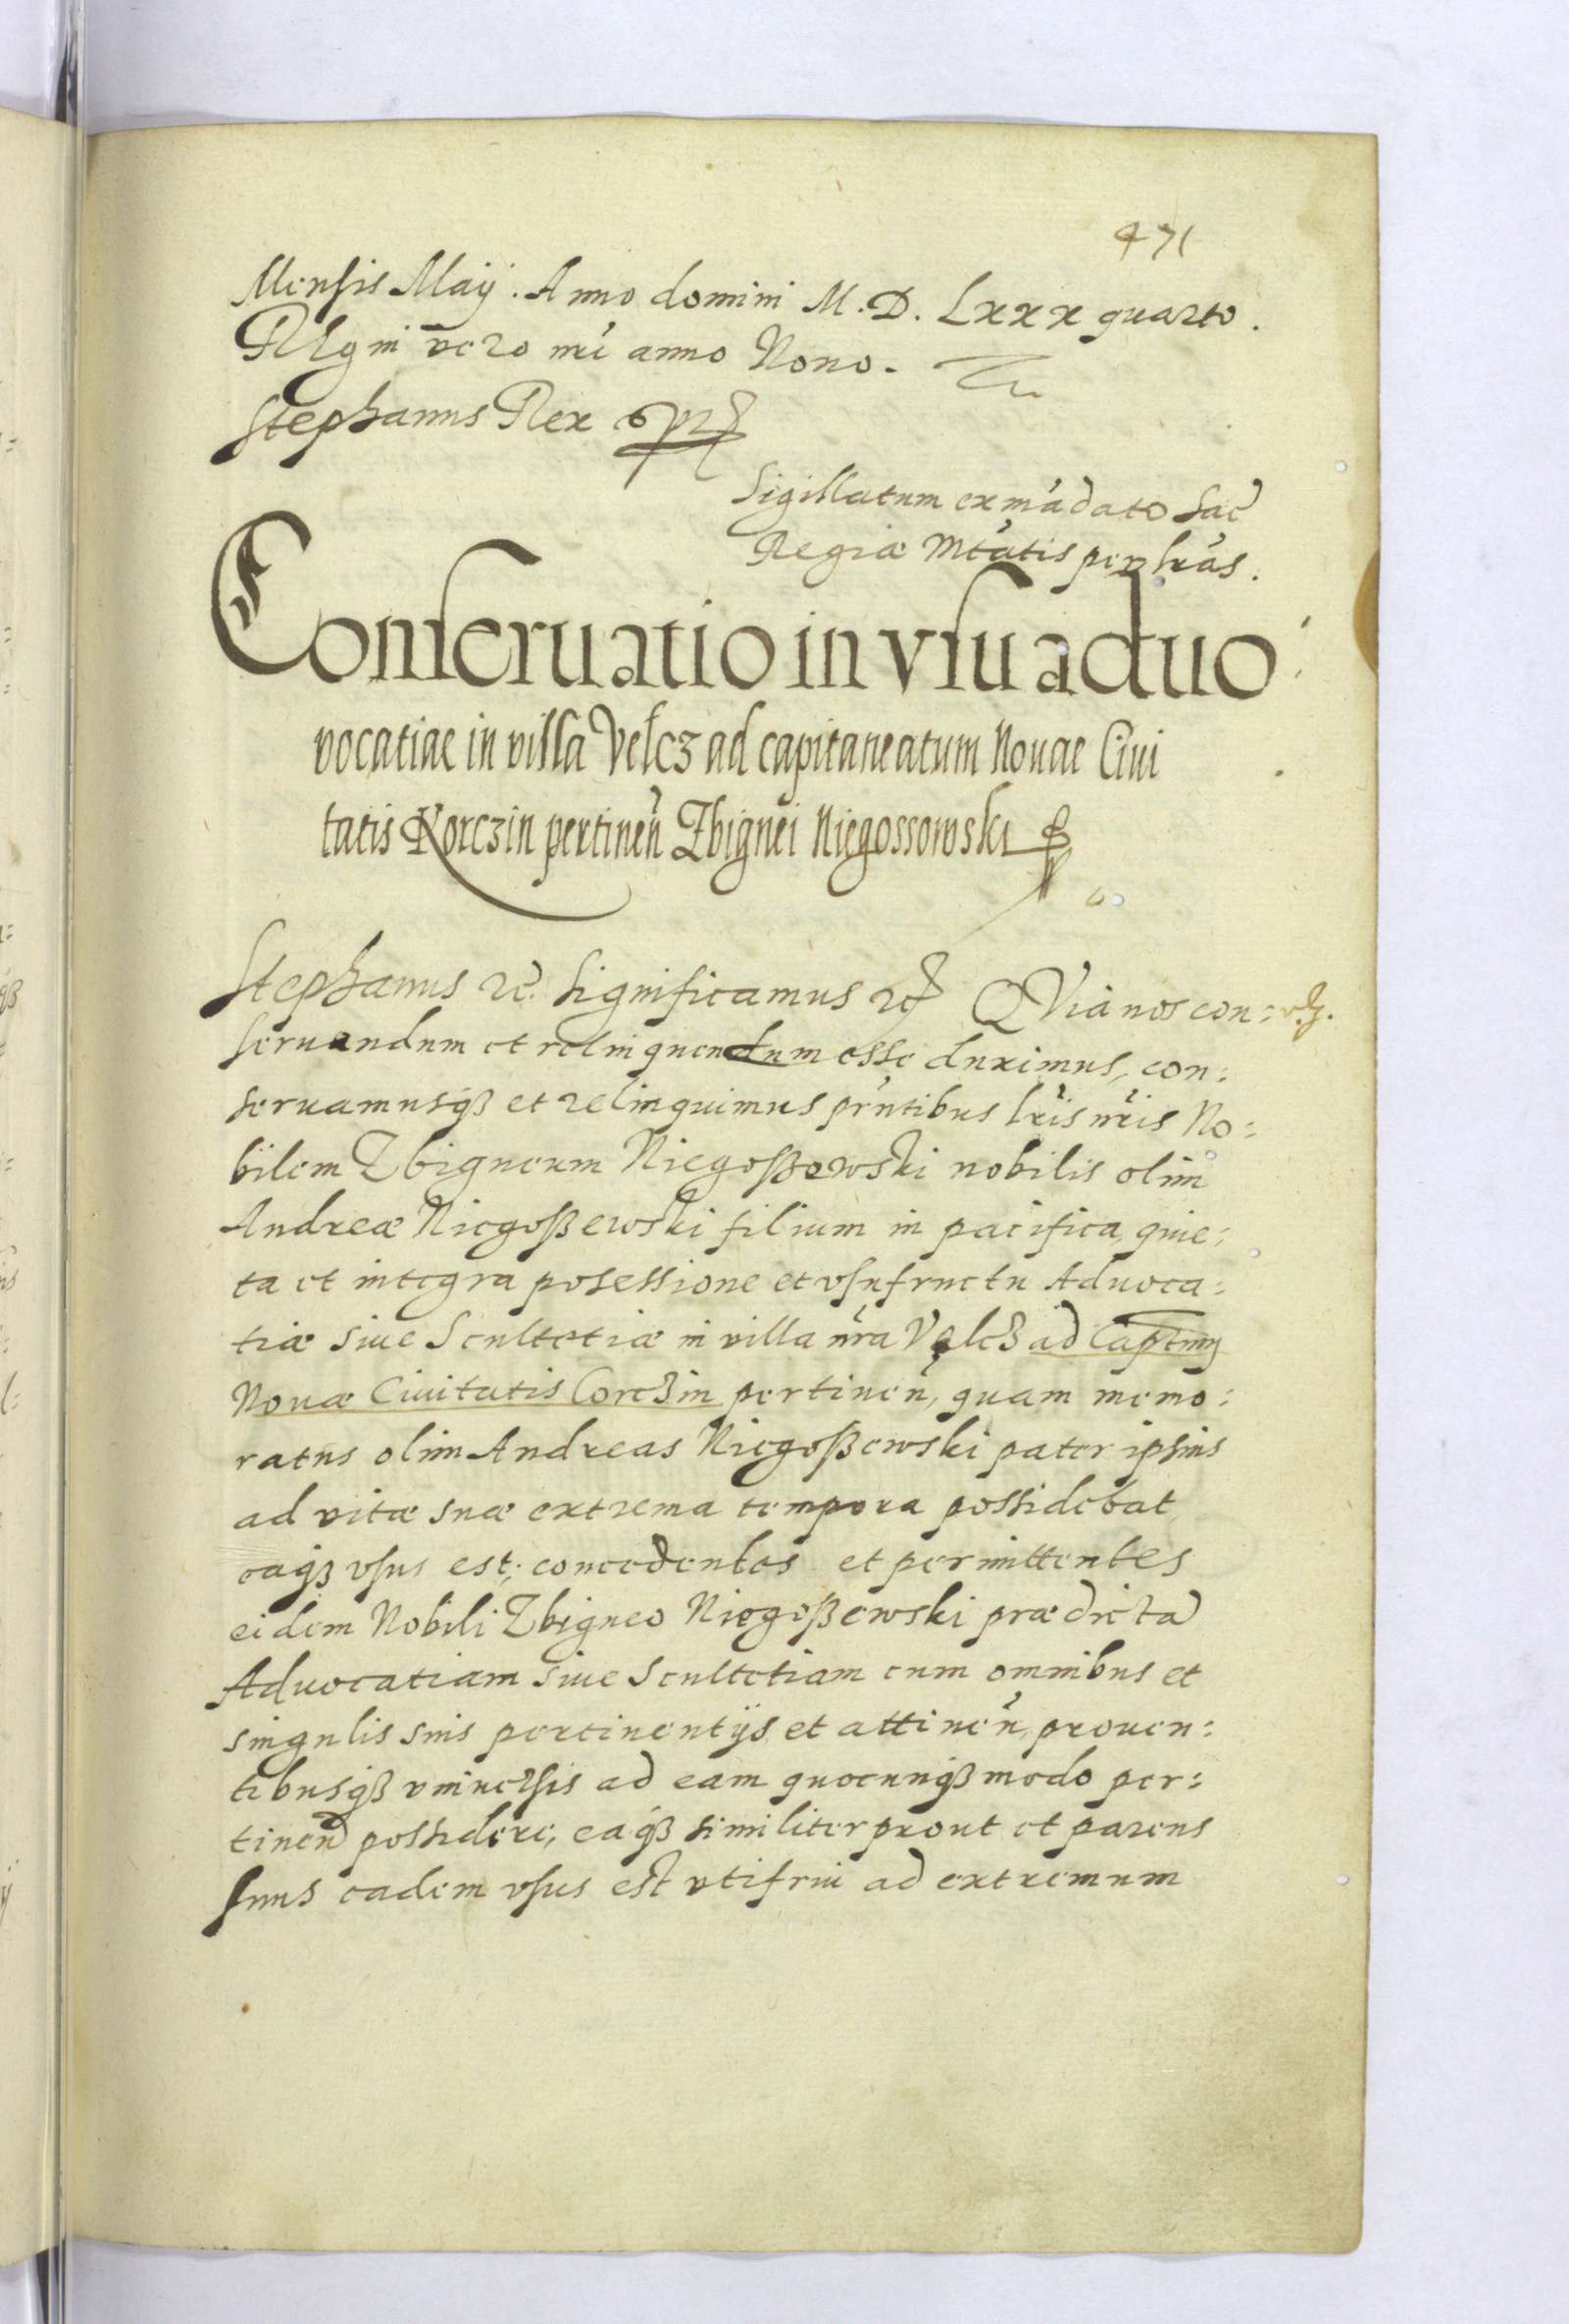 471
Mensis Maij. Anno domini M.D. Lxxx quarto.
Regni vero nri anno Nono.
Stephanus Rex
Sigillatum ex mādato Sac
Regiæ Mtātis per lrās.
Conseruatio in vsu aduo:
vocatiae in villa Velcz ad capitaneatum Nouae Ciui
tatis Korczin pertineñ Zbignei Niegossowski
Stephanus rc. Significamus rc QVia nos con:
seruandum et relinquendum esse duximus, con:
seruamusqß et relinquimus prńtibus lris nris No:
bilem Zbigneum Niegoßowski nobilis olim
Andreæ Niegoßewski filium in pacifica, quie:
ta et integra posessione et vsufructu Aduoca:
tiæ siue Scultetiæ in villa nra Velcz ad Captum
Nouæ Ciuitatis Corczin pertineñ, quam memo:
ratus olim Andreas Niegoßewski pater ipsius
ad vitæ suæ extrema tempora possidebat
eaqß vsus est; concedentes et permittentes
eidem Nobili Zbigneo Niegoßewski prædictā
Aduocatiam siue Scultetiam cum omnibus et
singulis suis pertinentijs et attineñ, prouen:
tibusqß vniuersis ad eam quocunqß modo per:
tineñ possidere, eaqß similiter prout et parens
suus eadem vsus est vtifrui ad extremum